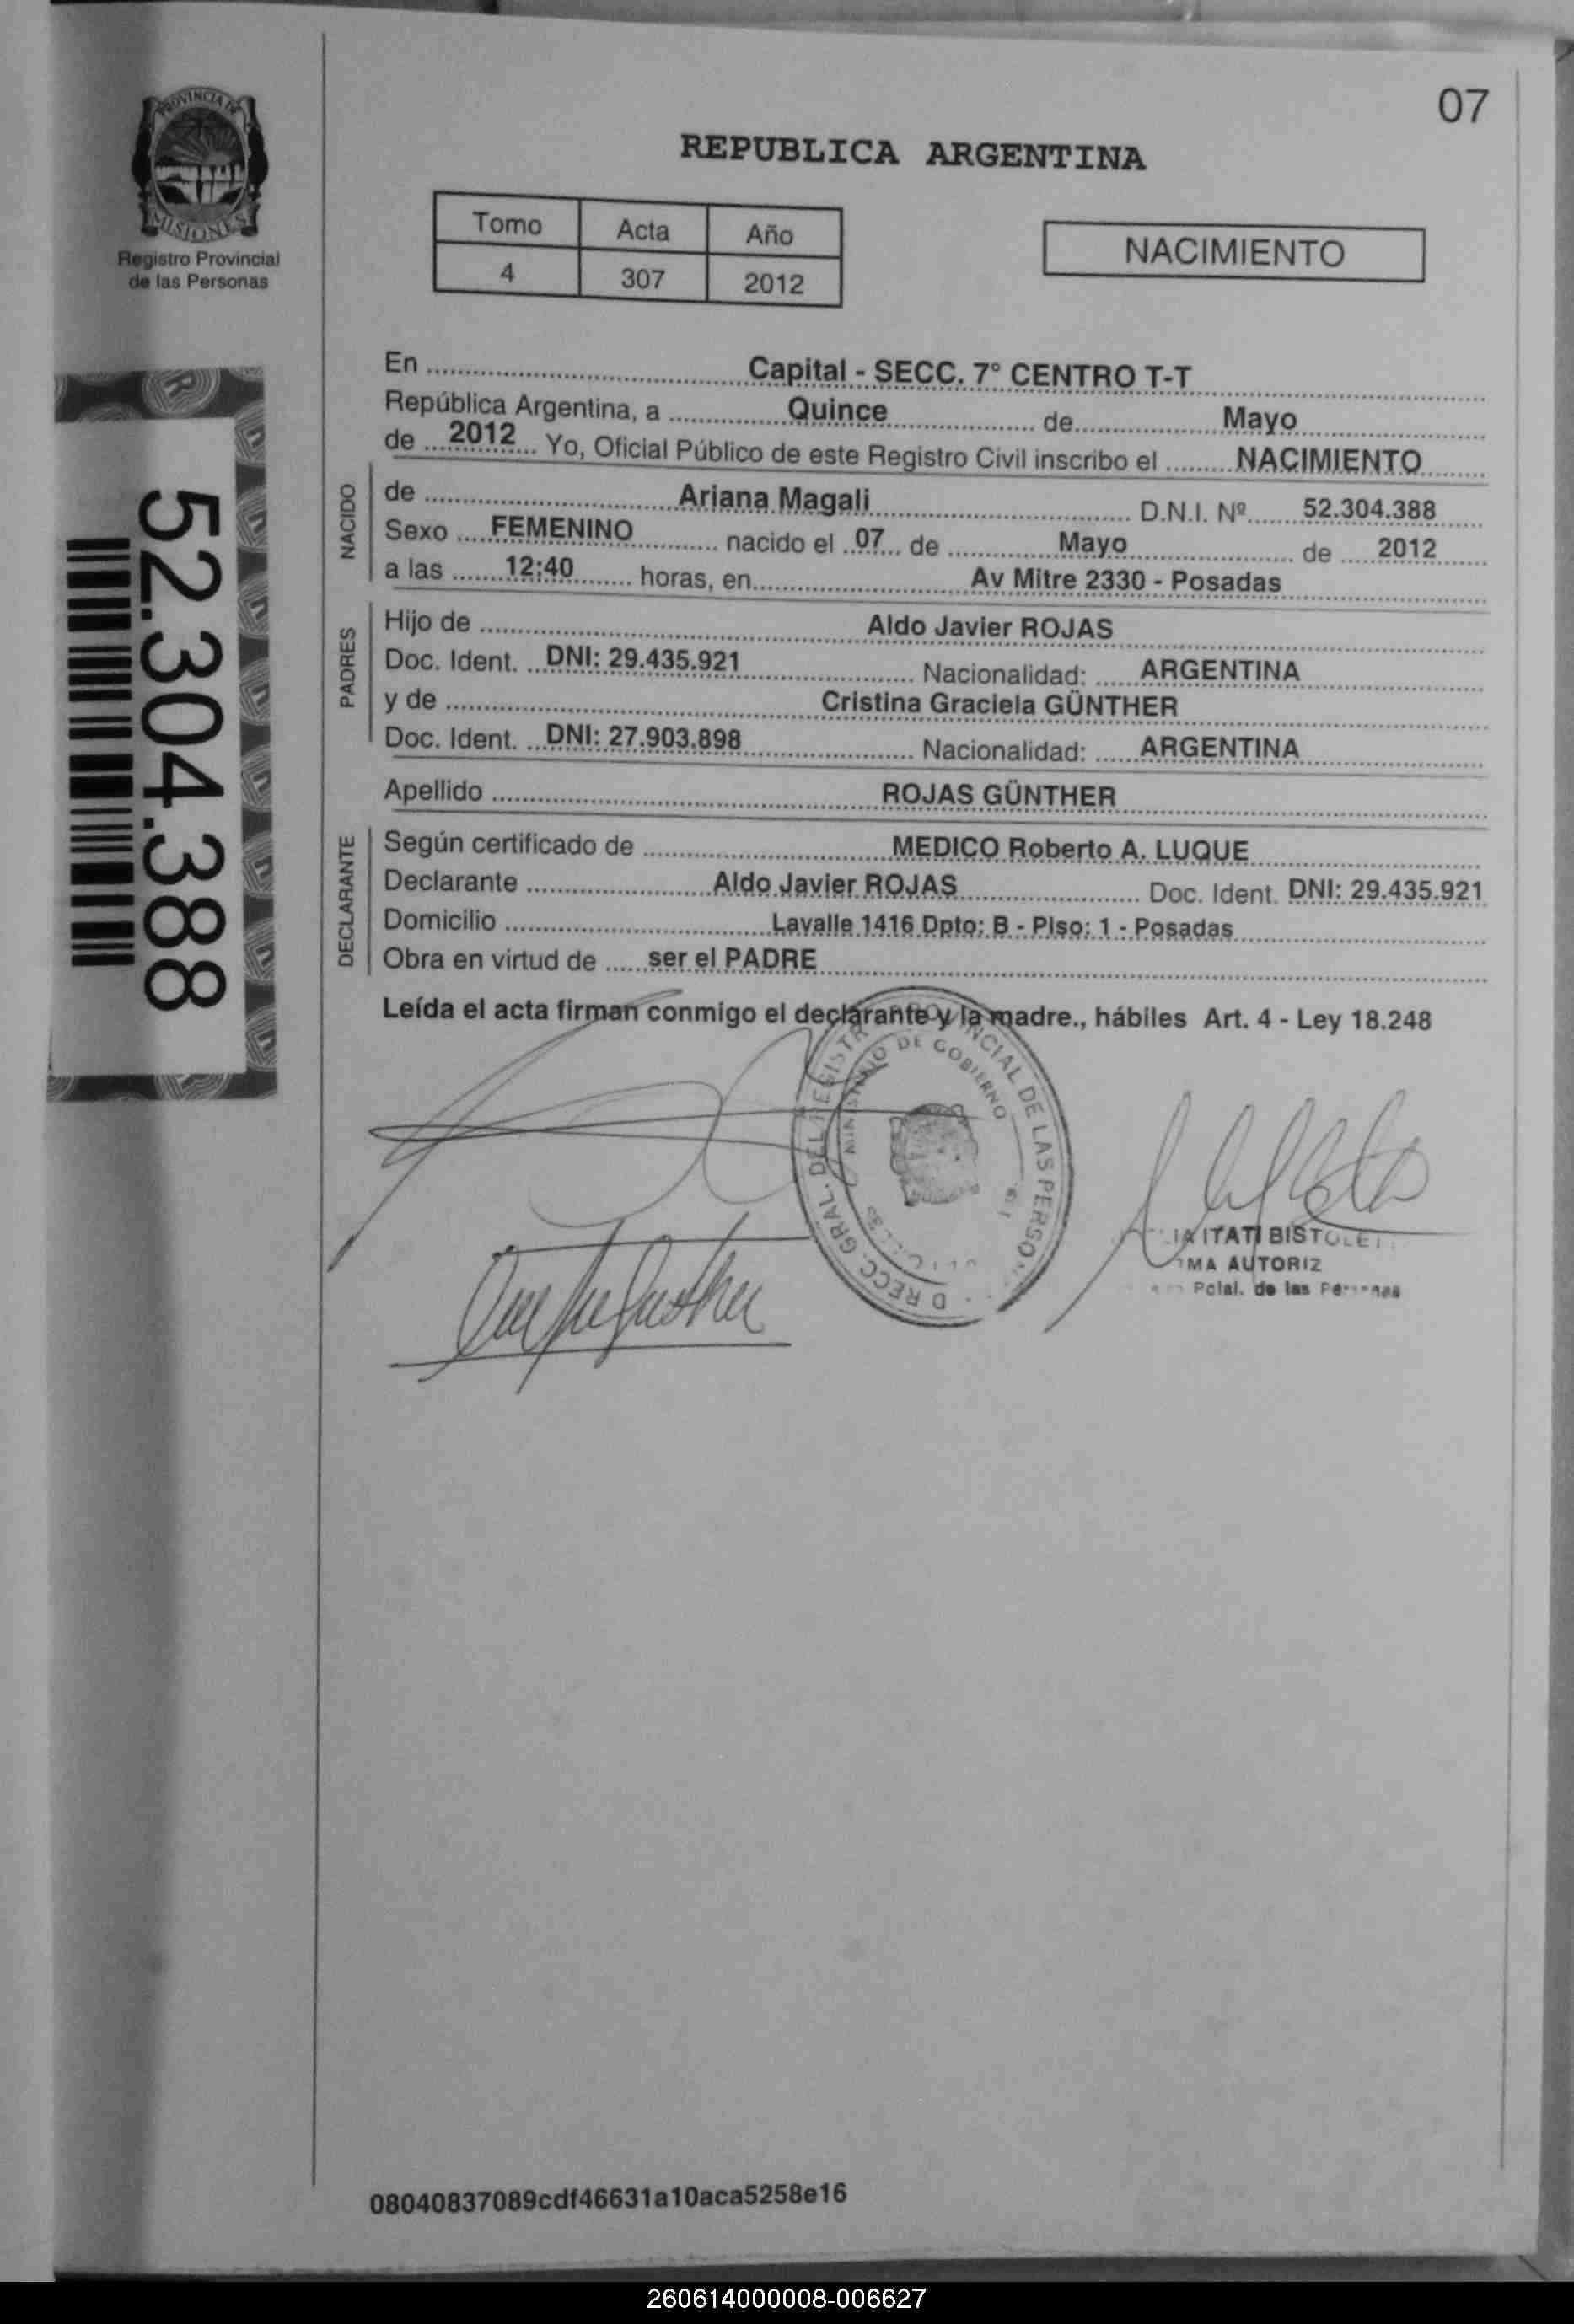 07
PROVINCIA DE
MISIONES
Registro Provincial
de las Personas
REPUBLICA ARGENTINA
Tomo Acta Año
4 307 2012
NACIMIENTO
52.304.388
En Capital - SECC. 7° CENTRO T-T
República Argentina, a Quince de Mayo
de 2012 Yo, Oficial Público de este Registro Civil inscribo el NACIMIENTO
NACIDO
de Ariana Magali D.N.I. Nº 52.304.388
Sexo FEMENINO nacido el 07 de Mayo de 2012
a las 12:40 horas, en Av Mitre 2330 - Posadas
PADRES
Hijo de Aldo Javier ROJAS
Doc. Ident. DNI: 29.435.921 Nacionalidad: ARGENTINA
y de Cristina Graciela GÜNTHER
Doc. Ident. DNI: 27.903.898 Nacionalidad: ARGENTINA
Apellido ROJAS GÜNTHER
DECLARANTE
Según certificado de MEDICO Roberto A. LUQUE
Declarante Aldo Javier ROJAS Doc. Ident. DNI: 29.435.921
Domicilio Lavalle 1416 Dpto: B - PIso: 1 - Posadas
Obra en virtud de ser el PADRE
Leída el acta firman conmigo el declarante y la madre., hábiles Art. 4 - Ley 18.248
GRAL. DEL REGISTRO PROVINCIAL DE LAS
MINISTERIO DE GOBIERNO
ITATI
Pcial. de las
08040837089cdf46631a10aca5258e16
260614000008-006627